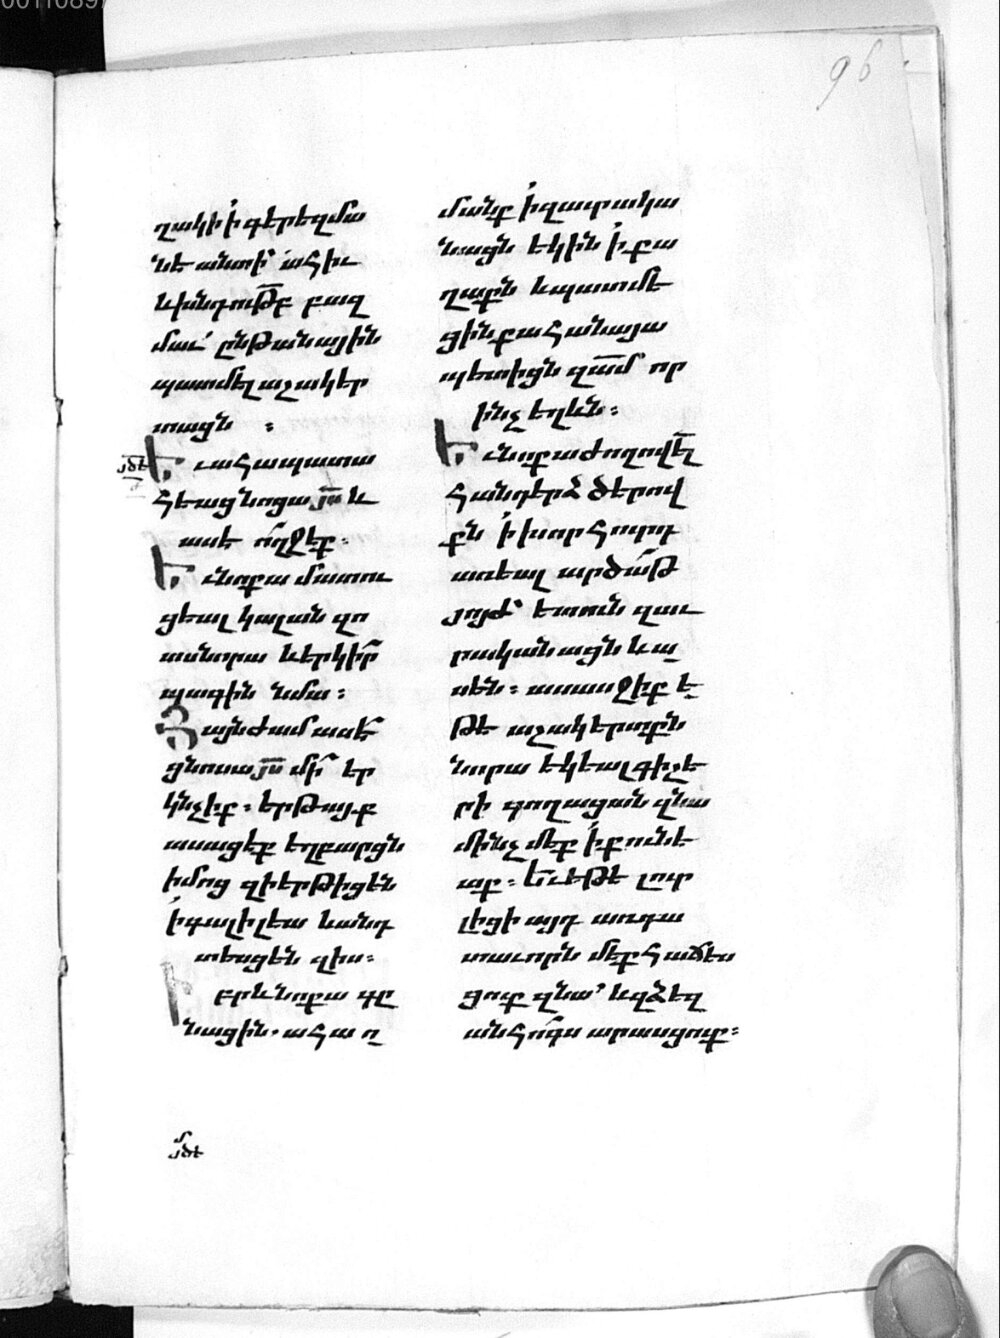 96
ղակի ի գերեզմա
նէ անտի՝ ահիւ
և խնդութբ բազ
մաւ՝ ընթանային
պատմել աշակեր
տացն :
Եւ ահա պատա
հեաց նոցա յս և
ասէ ո՛ղջ էք.
Եւ նոքա մատու
ցեալ կալան զո
տս նորա և երկիր
պագին նմա :
Յայնժամ ասէ
ցնոսա յս մի՛ եր
կնչիք. երթայք
ասացէք եղբարցն
իմոց զի երթիցեն
ի գալիլեա և անդ
տեսցեն զիս:
Իբրև նոքա գը
նացին. ահա ո
մանք ի զատակա
նացն եկին ի քա
ղաքն և պատմե
ցին քահանայա
պետիցն զամ որ
ինչ եղևն :
Եւ նոքա ժողովել
հանդերձ ծերով
քն ի խորհուրդ
առեալ արծաթ
յոյժ՝ ետուն զաւ
րականացն և ա
սեն : ասասջիք ե
թէ աշակերտքն
նորա եկեալ գիշե
րի գողացան զնա
մինչ մեք ի քունե
աք. Եւ եթէ լուր
լիցի այդ առ դա
տաւորն մեք հաճես
ցուք զնա՝ և զձեզ
անհոգս արասցուք :
մծե